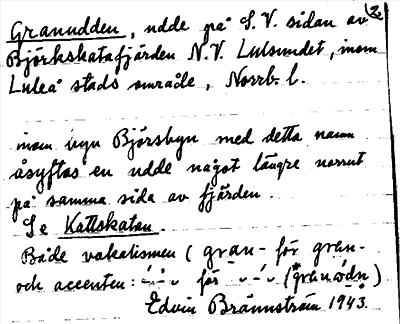 2
Granudden, udde på S.V. sidan av
Björkskatafjärden N.V. Lulsundet, inom
Luleå stads område, Norrb. l.
inom byn Björsbyn med detta namn
åsyftas en udde något längre norrut
på samma sida av fjärden.
Se Kattskatan
Både vokalismen (gran- för gran-
och accenten: för
Edvin Brännström 1943.